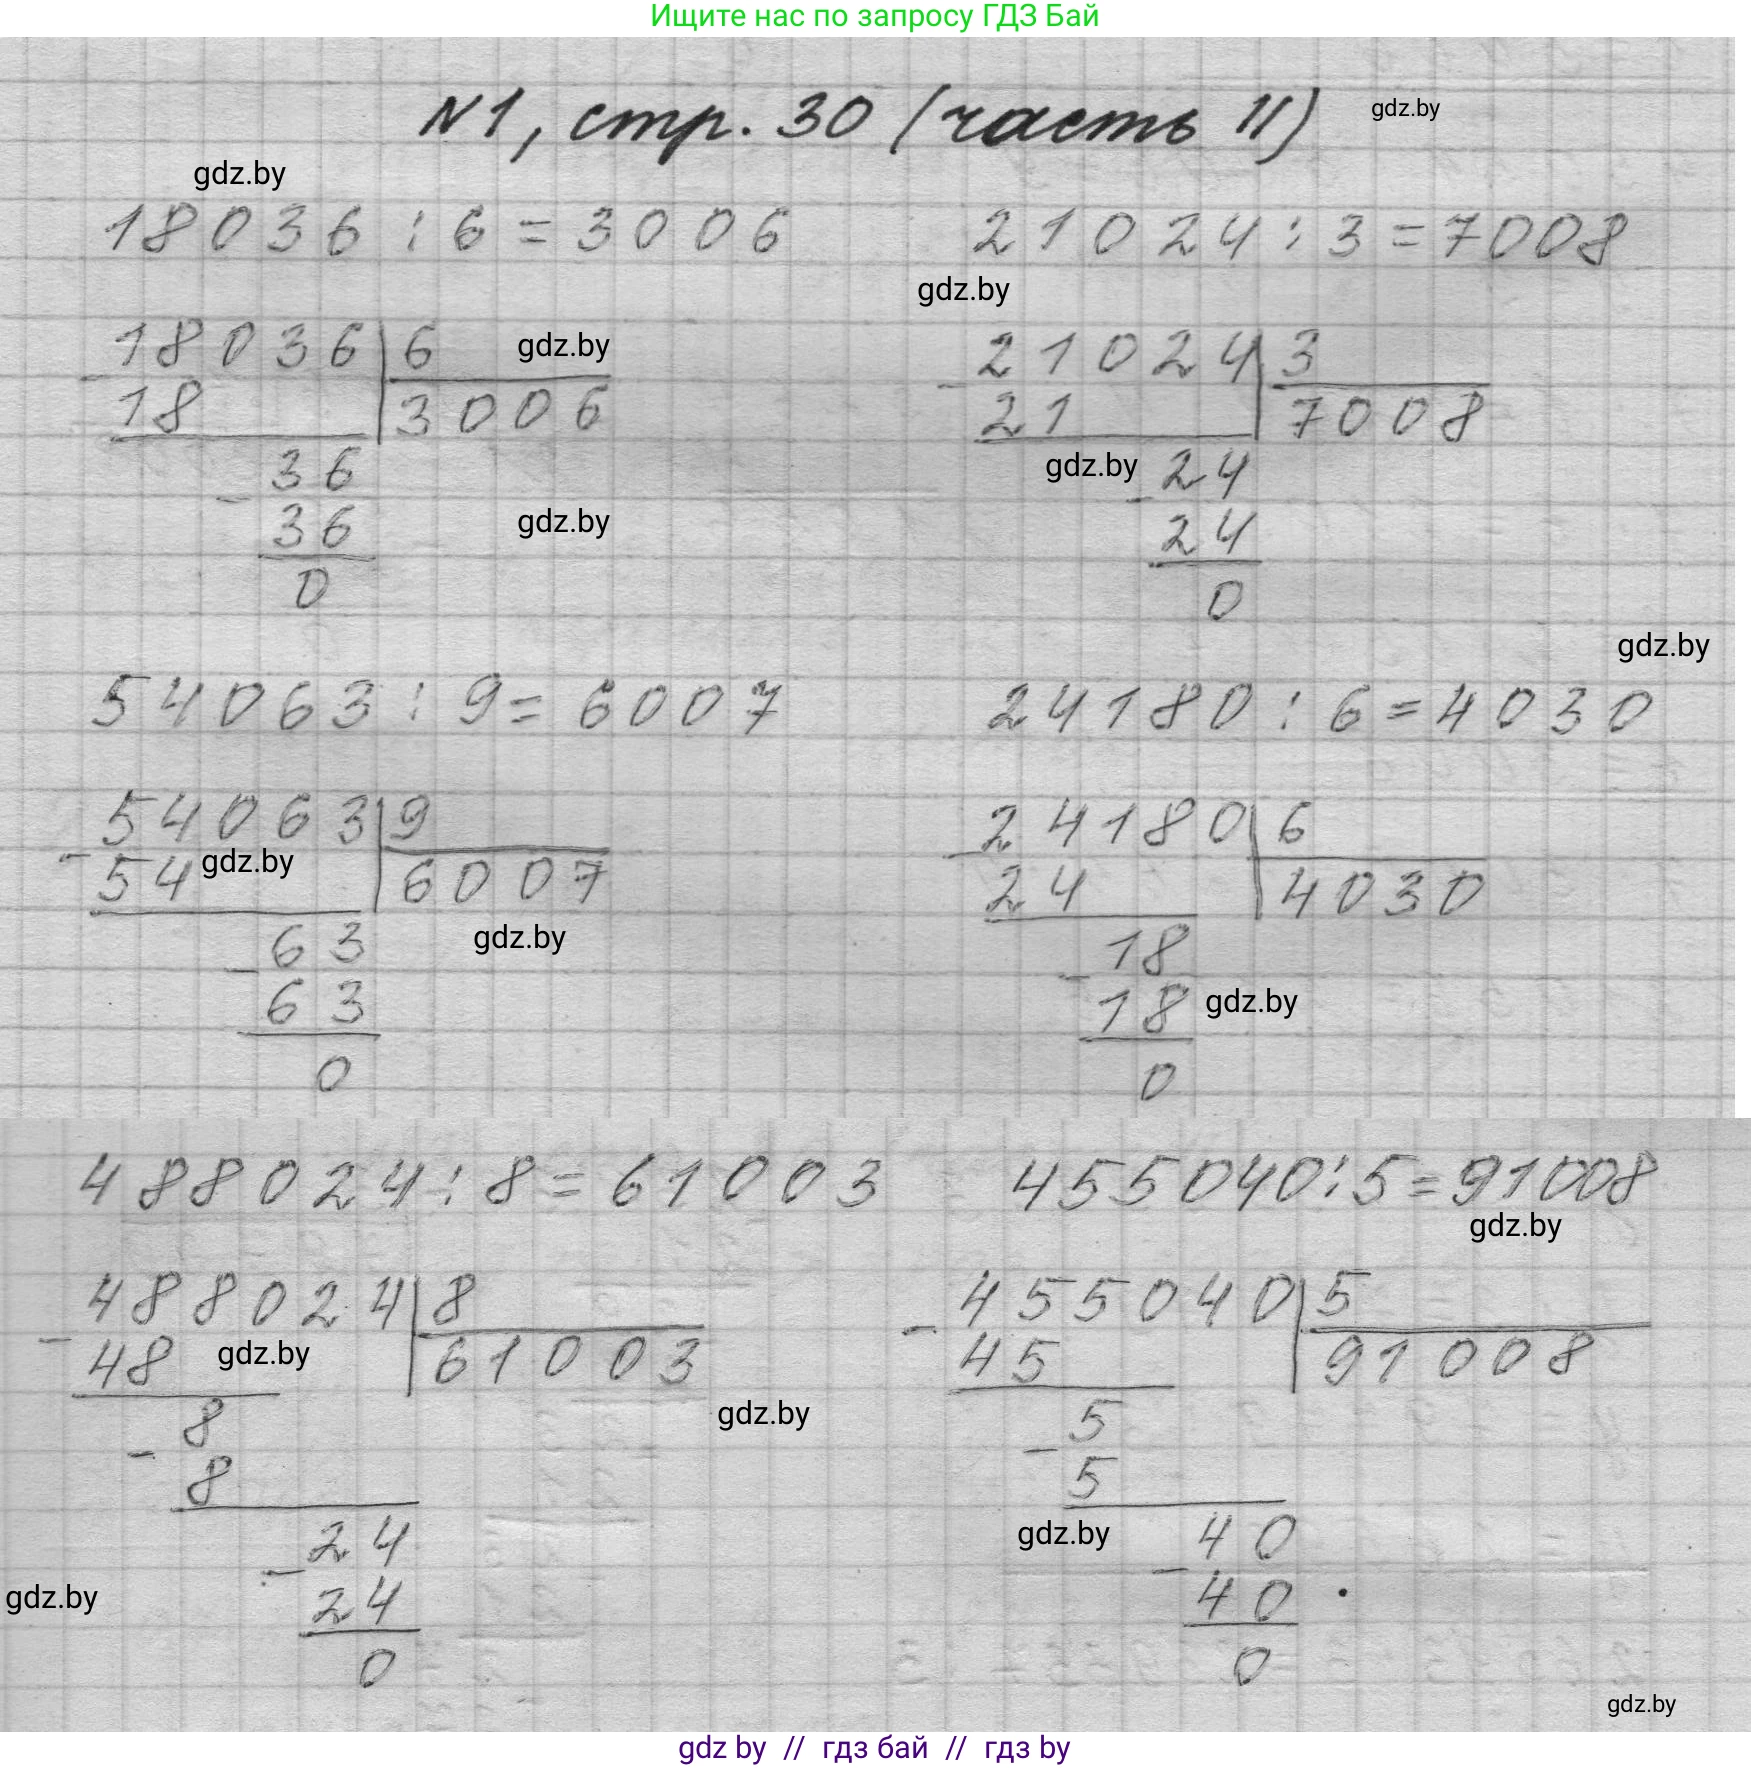 Ищите нас по запросу ГДЗ Бай
№1, стр. 30 (часть II)
gdz.by
gdz.by
18036 : 6 = 3006
21024 : 3 = 7008
gdz.by
18036 | 6
gdz.by
- 18 | 3006
36
- 36
gdz.by
0
21024 | 3
- 21 | 7008
gdz.by
24
- 24
0
gdz.by
54063 : 9 = 6007
24180 : 6 = 4030
54063 | 9
- 54 | 6007
gdz.by
gdz.by
63
- 63
0
24180 | 6
- 24 | 4030
18
- 18
gdz.by
0
488024 : 8 = 61003
455040 : 5 = 91008
gdz.by
488024 | 8
- 48 | 61003
gdz.by
gdz.by
8
- 8
24
- 24
gdz.by
0
455040 | 5
- 45 | 91008
5
- 5
gdz.by
40
- 40
0
gdz.by
gdz by // гдз бай // гдз by